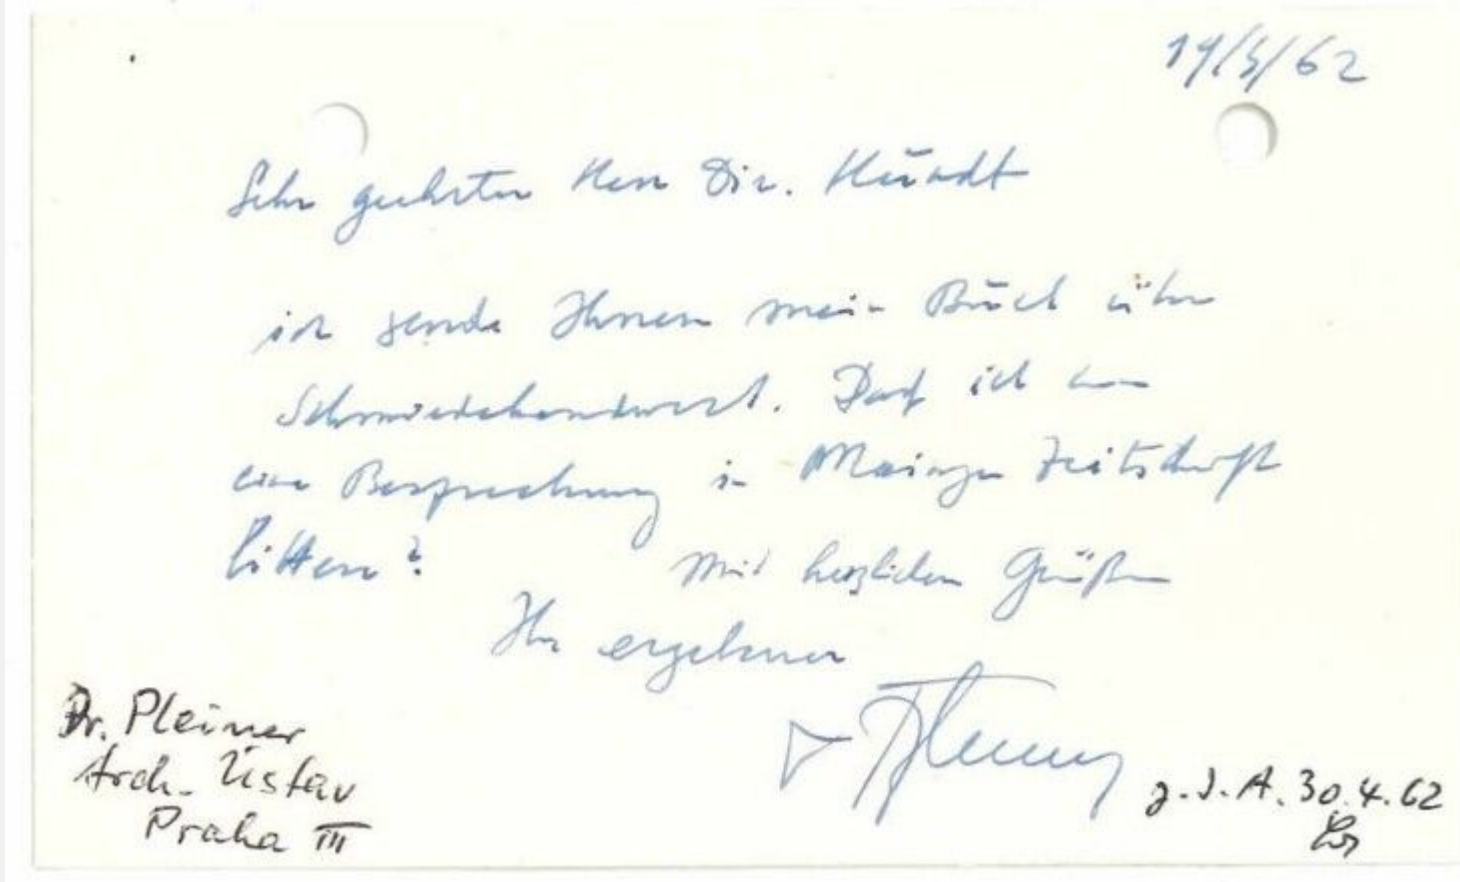 19/3/62
Sehr geehrter Herr Dir. Hundt
ich sende Ihnen mein Buch über
Schmiedehandwerk. Darf ich um
eine Besprechung in Mainzer Zeitschrift
bitten?
Mit herzlichen Grüßen
Ihr ergebener
Pleiner
Dr. Pleiner
Arch. Ústav
Praha III
z. d. A. 30.4.62